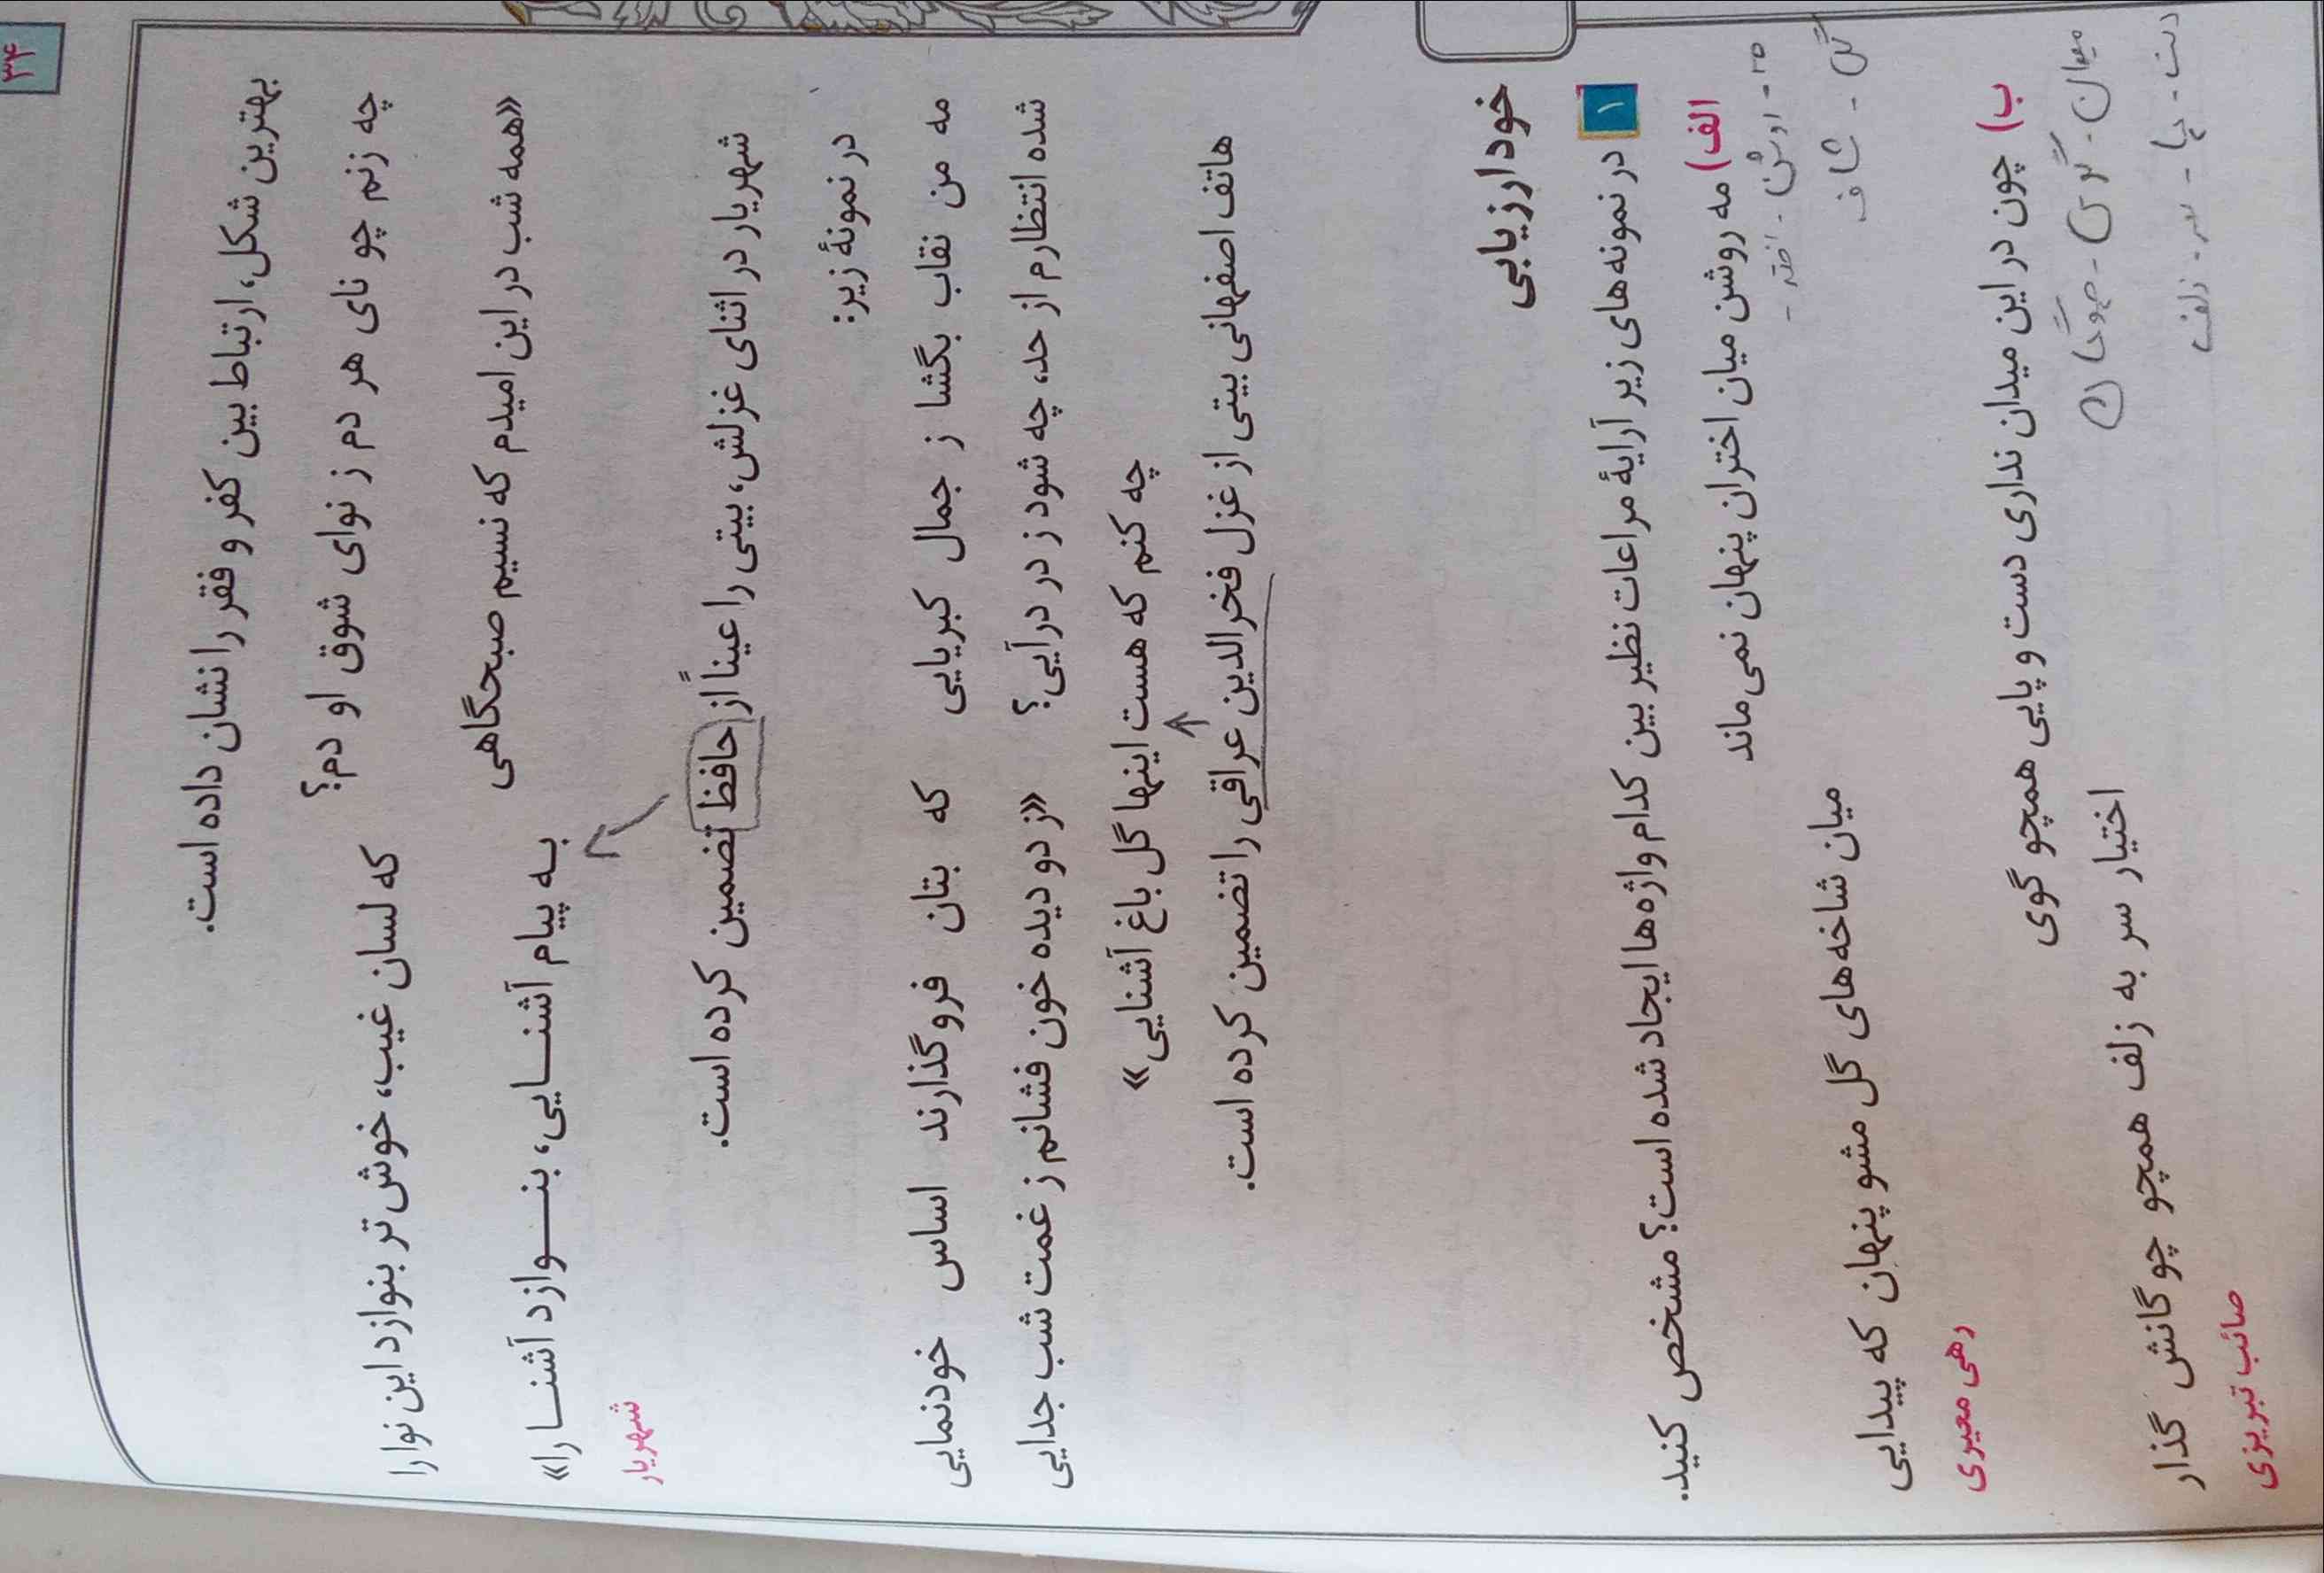 ۳۴
بهترین شکل، ارتباط بین کفر و فقر را نشان داده است.
چه زنم چو نای هر دم ز نوای شوق او دم؟ که لسان غیب، خوش تر بنوازد این نوا را
«همه شب در این امیدم که نسیم صبحگاهی به پیام آشنایی، بنوازد آشنا را»
شهریار
شهریار در اثنای غزلش، بیتی را عیناً از حافظ تضمین کرده است.
در نمونهٔ زیر:
مه من نقاب بگشا ز جمال کبریایی که بتان فروگذارند اساس خودنمایی
شده انتظارم از حد، چه شود ز در درآیی؟ «ز دو دیده خون فشانم ز غمت شب جدایی
چه کنم که هست اینها گل باغ آشنایی»
هاتف اصفهانی بیتی از غزل فخرالدین عراقی را تضمین کرده است.
خودارزیابی
۱ در نمونه های زیر آرایهٔ مراعات نظیر بین کدام واژه ها ایجاد شده است؟ مشخص کنید.
الف) مه روشن میان اختران پنهان نمی ماند
میان شاخه های گل مشو پنهان که پیدایی
گل - شاخه
رهی معیری
ب) چون در این میدان نداری دست و پایی همچو گوی
میدان - گوی - چوگان
اختیار سر به زلف همچو چوگانش گذار
دست - پا - سر - زلف
صائب تبریزی